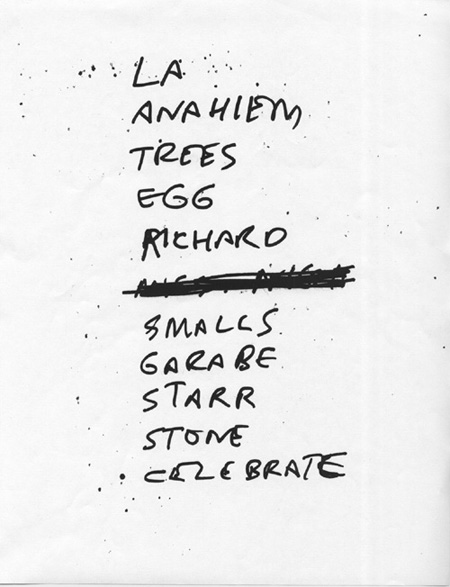 LA
ANAHIEM
TREES
EGG
RICHARD
SMALLS
GARABE
STARR
STONE
CELEBRATE